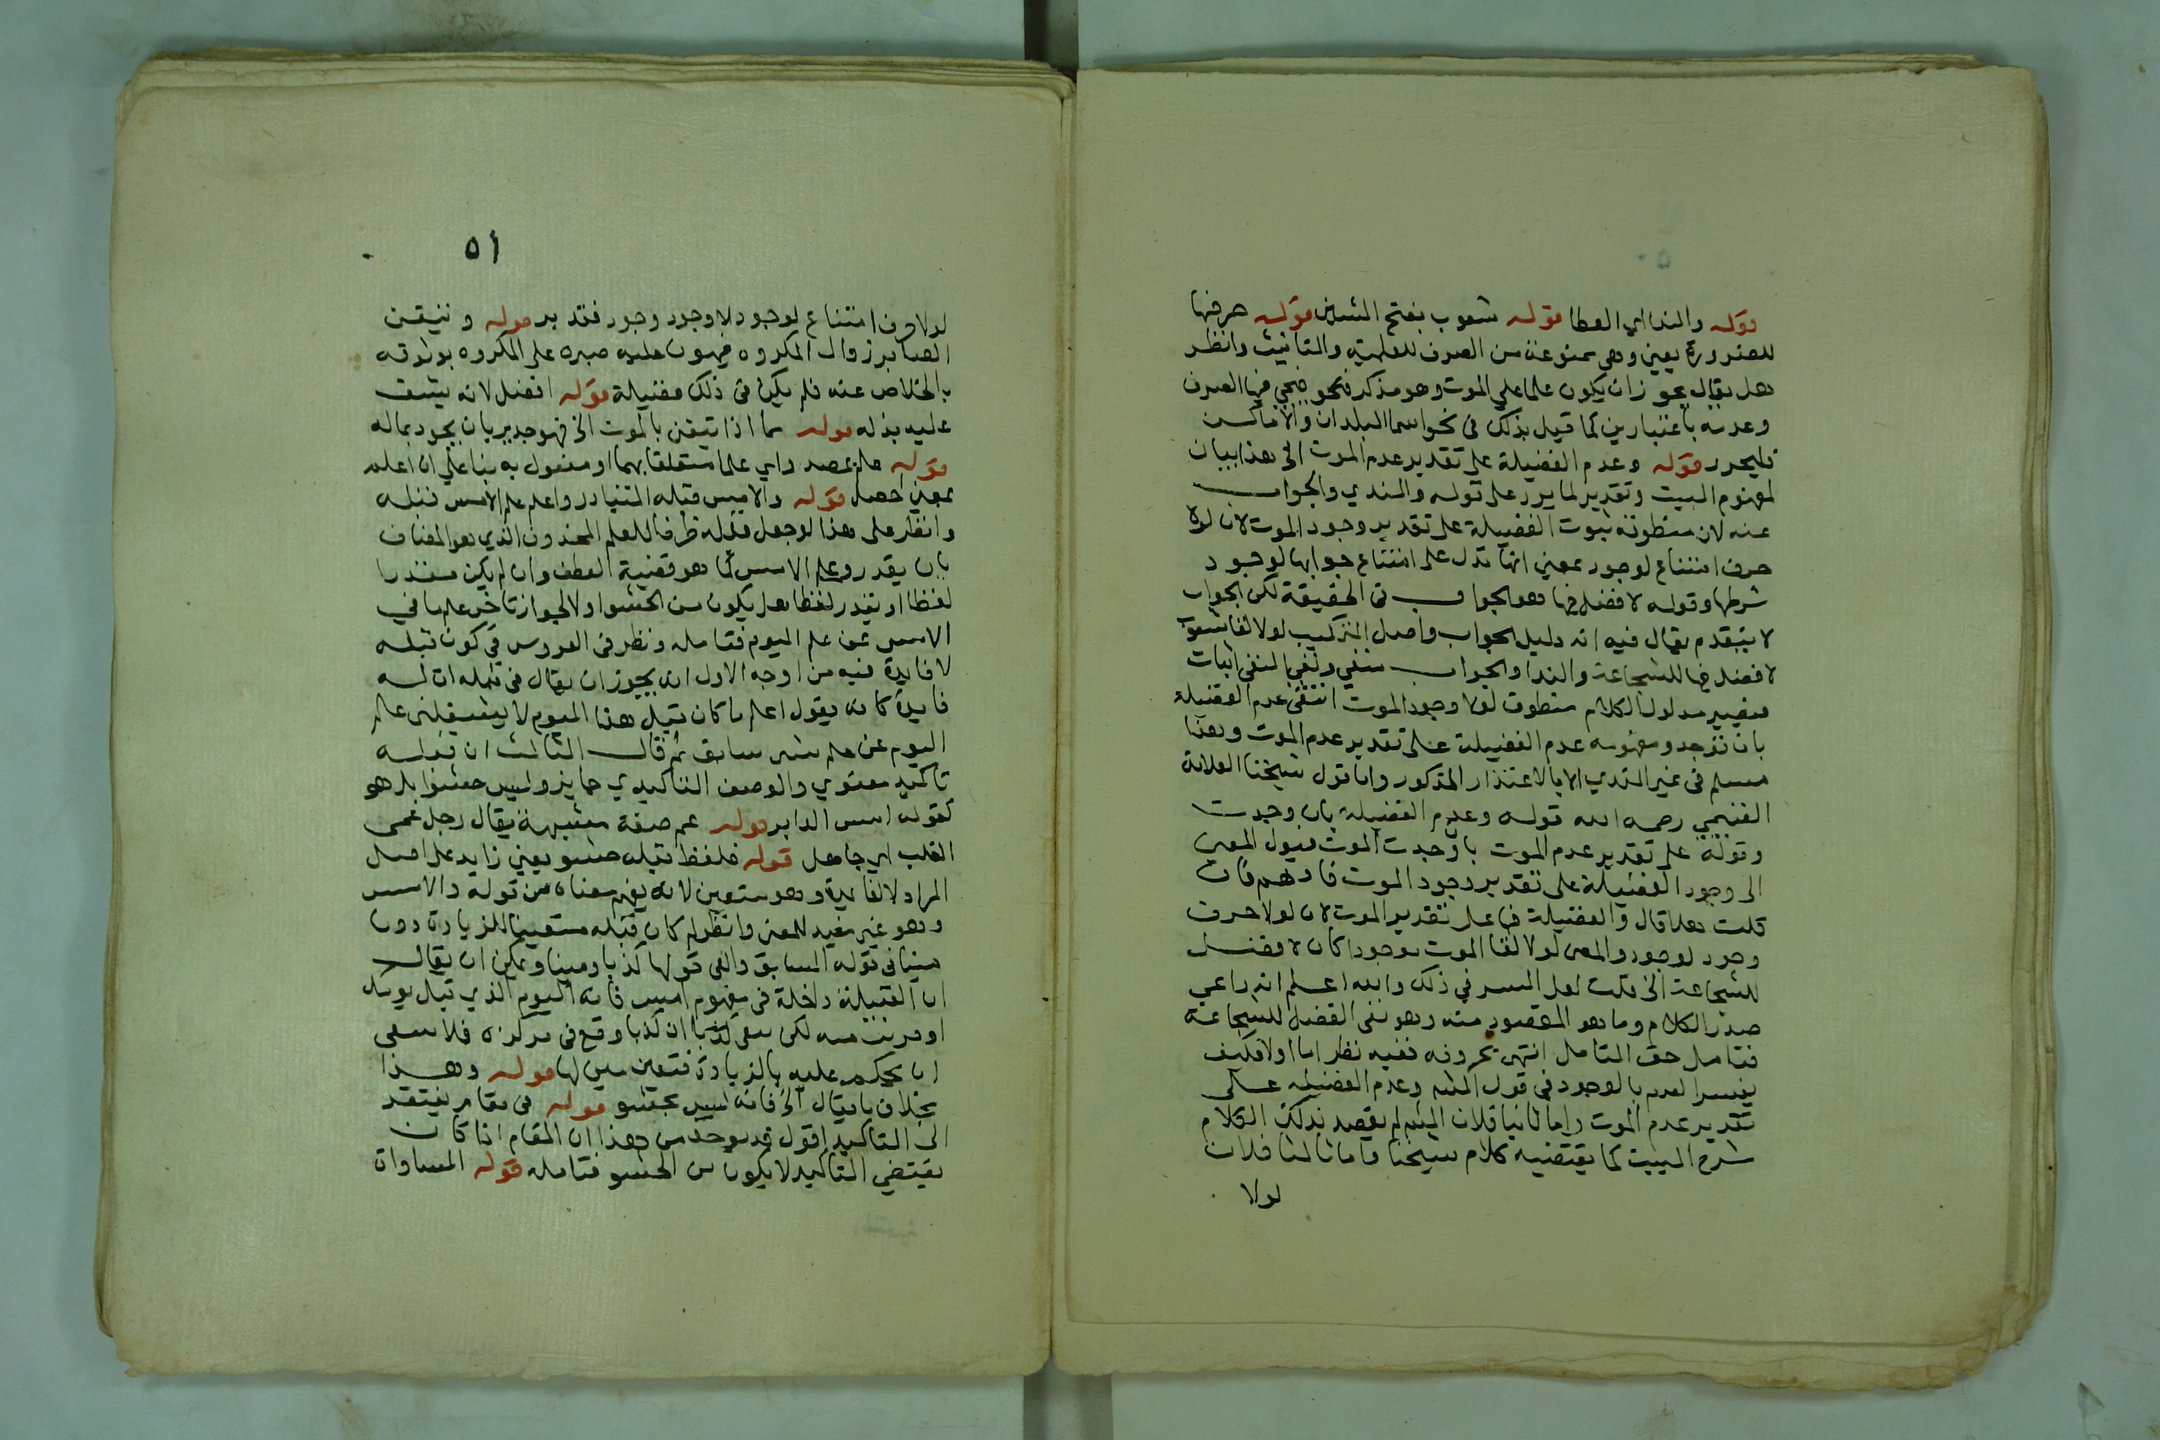 قوله والندا اي العطا قوله شعوب بفتح الشين قوله صرفها
للضرورة يعني وهي ممنوعة من الصرف للعلمية والتانيث وانظر
هل يقال يجوز ان يكون علما علي الموت وهو مذكر فيجي فيها الصرف
وعدمه باعتبارين كما قيل بذلك في نحو اسما البلدان والاماكن
فليحرر قوله وعدم الفضيلة على تقدير عدم الموت الخ هذا بيان
لمفهوم البيت وتقدير لما يرد على قوله والندي والجواب
عنه لان منطوقه ثبوت الفضيلة على تقدير وجود الموت لان لولا
حرف امتناع لوجود بمعني انها تدل على امتناع جوابها لوجود
شرطها وقوله لا فضل فيها هو الجواب في الحقيقة لكن الجواب
لا يتقدم يقال فيه انه دليل الجواب واصل التركيب لولا لقا شعوب
لا فضل فيها للشجاعة والندا والجواب منفي ونفي النفي اثبات
فيصير مدلول الكلام منطوق لولا وجود الموت انتفى عدم الفضيلة
بان توجد ومفهومه عدم الفضيلة على تقدير عدم الموت وهذا
مسلم في غير الندي الا بالاعتذار المذكور واما قول شيخنا العلامة
الغنيمي رحمه الله قوله وعدم الفضيلة بان وجدت
وقوله على تقدير عدم الموت بان وجدت الموت فيول المعنى
الى وجود الفضيلة على تقدير وجود الموت فافهم فان
قلت هلا قال والفضيلة على تقدير الموت لان لولا حرف
وجود لوجود والمعنى لولا لقا الموت موجودا كان لا فضل
للشجاعة الخ قلت لعل السر في ذلك والله اعلم انه راعي
صدر الكلام وما هو المقصود منه وهو نفى الفضل للشجاعة
فتامل حق التامل انتهى بحروفه ففيه نظر اما اولا فكيف
يفسر العدم بالوجود في قول الش وعدم الفضيلة على
تقدير عدم الموت واما ثانيا فلان الش لم يقصد بذلك الكلام
شرح البيت كما يقتضيه كلام شيخنا واما ثالثا فلان
لولا
٥١
لولا حرف امتناع لوجود لا وجود وجود فتدبر قوله وتيقن
الصابر زوال المكروه فيهون عليه صبره على المكروه بوثوقه
بالخلاص عنه فلم يكن في ذلك فضيلة قوله افضل لانه يشق
عليه بذله قوله سما اذا تيقن بالموت الخ فهو جدير بان يجود بماله
قوله علم مصدر اي علما متعلقا بهما او مفعول به بنا علي ان اعلم
بمعني احصل قوله والامس قبله المتبادر واعلم علم الامس قبله
وانظر على هذا لو جعل قبله ظرفا للعلم المحذوف الذي هو المضاف
بان يقدر وعلم الامس كما هو قضية العطف وان لم يكن مقدرا
لفظا او يقدر لفظا هل يكون من الحشو او لا لجواز تاخر علم ما في
الامس عن علم اليوم فتامله ونظر في العروس في كون قبله
لا فايدة فيه من اوجه الاول انه يجوز ان يقال في قبله ان له
فايدة كانه يقول اعلم ما كان قبل هذا اليوم لا يشغلني علم
اليوم عن علم شي سابق ثم قال الثالث ان قوله
تاكيد معنوي والوصف التاكيدي جايز وليس حشوا بل هو
كقوله امس الدابر قوله عم صفة مشبهة يقال رجل عمي
القلب اي جاهل قوله فلفظ قبله حشو يعني زايد على اصل
المراد لا لفايدة وهو متعين لانه يفهم معناه من قوله والامس
وهو غير مفيد للمعنى وانظر لم كان قبله متعينا للزيادة دون
مينا في قوله السابق والفى قولها كذبا ومينا ويمكن ان يقال
ان القبلية داخلة في مفهوم امس فانه اليوم الذي قبل يومك
او قريب منه لكن كذبا وقع في مركزه فلا
ان يحكم عليه بالزيادة فتعين مين لها قوله وهذا
بخلاف ما يقال الخ فانه ليس بحشو قوله في مقام يفتقر
الى التاكيد اقول قد يوخذ من هذا ان المقام اذا كان
يقتضي التاكيد لا يكون من الحشو فتامله قوله المساواة